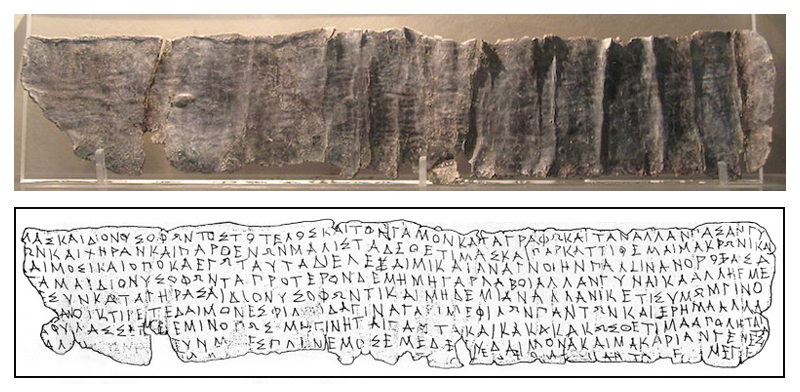 ΜΑΣΚΑΙΔΙΟΝΥΣΟΦΩΝΤΟΣΤΟΤΕΛΟΣΚΑΙΤΟΝΓΑΜΟΝΚΑΤΑΓΡΑΦΩΚΑΙΤΑΝΑΛΛΑΝΠΑΣΑΝΓΥ
ΩΝΚΑΙΧΗΡΑΝΚΑΙΠΑΡΘΕΝΩΝΜΑΛΙΣΤΑΔΕΘΕΤΙΜΑΣΚΑΙΠΑΡΚΑΤΤΙΘΕΜΑΙΜΑΚΡΩΝΙΚΑΙ
ΔΑΙΜΟΣΙΚΑΙΟΠΟΚΑΕΓΩΤΑΥΤΑΔΙΕΛΕΞΑΙΜΙΚΑΙΑΝΑΓΝΟΙΗΝΠΑΛΙΝΑΝΟΡΟΞΑΣΑ
ΓΑΜΑΙΔΙΟΝΥΣΟΦΩΝΤΑΠΡΟΤΕΡΟΝΔΕΜΗΜΗΓΑΡΛΑΒΟΙΑΛΛΑΝΓΥΝΑΙΚΑΑΛΛΗΕΜΕ
ΕΣΥΝΚΑΤΑΓΗΡΑΣΑΙΔΙΟΝΥΣΟΦΩΝΤΙΚΑΙΜΗΔΕΜΙΑΝΑΛΛΑΝΙΚΕΤΙΣΥΜΩΜΓΙΝΟ
ΑΝΟΙΚΤΙΡΕΤΕΔΑΙΜΟΝΕΣΦΙΛΔΑΓΙΝΑΓΑΡΙΜΕΦΙΛΩΝΠΑΝΤΩΝΚΑΙΕΡΗΜΑΑΛΛΑ
ΑΦΥΛΑΣΣΕΤΕΕΜΙΝΟΠΩΣΜΗΓΙΝΗΤΑΙΤΑΥΤΑΚΑΙΚΑΚΑΚΑΚΩΣΘΕΤΙΜΑΑΠΟΛΗΤΑΙ
ΥΝΜΕΣΠΛΗΝΕΜΟΣΕΜΕΔΕΕΥΔΑΙΜΟΝΑΚΑΙΜΑΚΑΡΙΑΝΓΕΝΕΣΤΑΙ